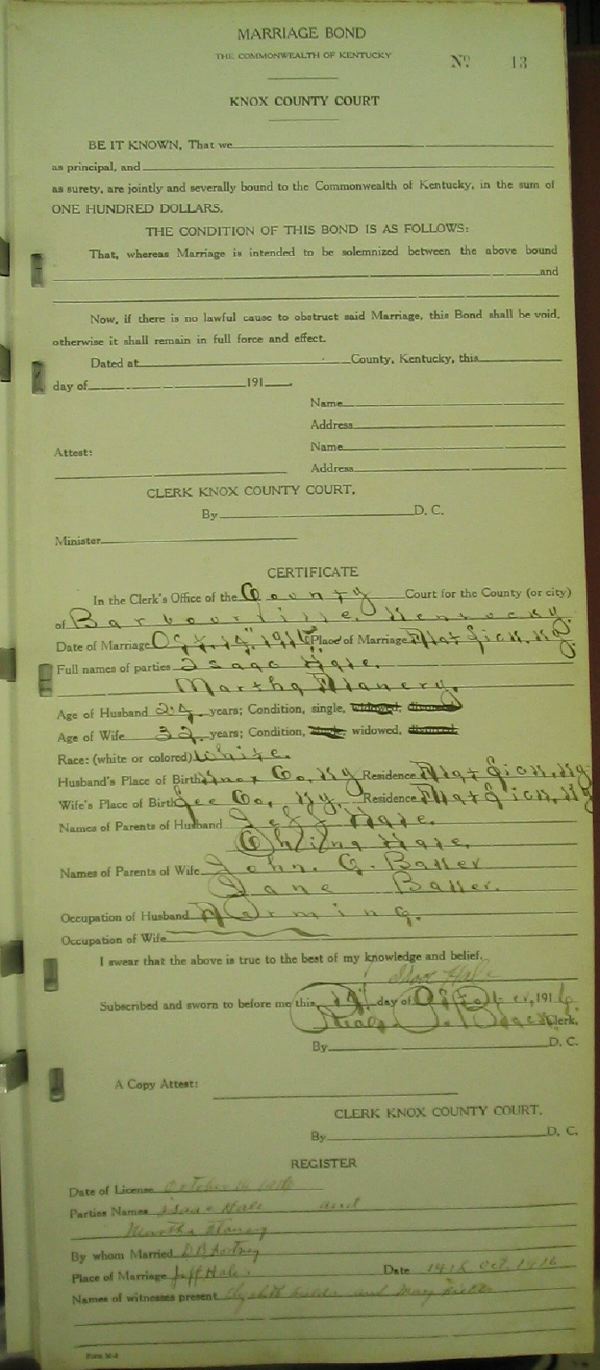 MARRIAGE BOND
THE COMMONWEALTH OF KENTUCKY
No. 13
KNOX COUNTY COURT
BE IT KNOWN, That we
as principal, and
as surety, are jointly and severally bound to the Commonwealth of Kentucky, in the sum of
ONE HUNDRED DOLLARS.
THE CONDITION OF THIS BOND IS AS FOLLOWS:
That, whereas Marriage is intended to be solemnized between the above bound
and
Now, if there is no lawful cause to obstruct said Marriage, this Bond shall be void,
otherwise it shall remain in full force and effect.
Dated at County, Kentucky, this
day of 191
Name
Address
Name
Attest:
Address
CLERK KNOX COUNTY COURT.
By D. C.
Minister
CERTIFICATE
In the Clerk's Office of the County Court for the County (or city)
of Barbourville, Kentucky.
Date of Marriage Oct. 14" 1916 Place of Marriage Flat Lick, Ky.
Full names of parties Isaac Hale.
Martha Flanery.
Age of Husband years; Condition, single, widowed, divorced
Age of Wife 32 years; Condition, single, widowed, divorced
Race: (white or colored) White.
Husband's Place of Birth Knox Co, Ky Residence Flat Lick, Ky
Wife's Place of Birth Lee Co, Ky. Residence Flat Lick, Ky
Names of Parents of Husband Jeff Hale.
Hale.
Names of Parents of Wife John. G. Baker
Jane Baker.
Occupation of Husband Farming.
Occupation of Wife
I swear that the above is true to the best of my knowledge and belief.
Hale
Subscribed and sworn to before me this 14" day of October, 1916
Read Black Clerk.
By D. C.
A Copy Attest:
CLERK KNOX COUNTY COURT.
By D. C.
REGISTER
Date of License October 14 1916
Parties Names Isaac Hale and
Martha Flanery
By whom Married D.B.
Place of Marriage Jeff Hale. Date 14th Oct. 1916
Names of witnesses present and Mary
Form M-2